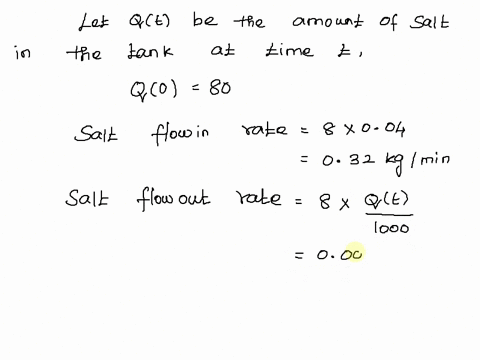 Let Q(t) be the amount of salt
in the tank at time t,
Q(0) = 80
Salt flowin rate = 8 × 0.04
= 0.32 kg/min
Salt flowout rate = 8 × Q(t)/1000
= 0.00